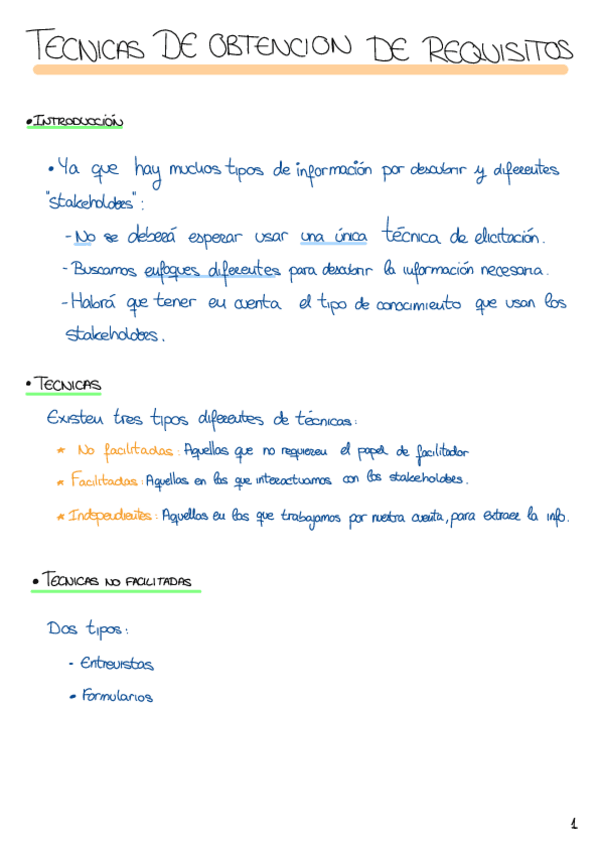 TECNICAS DE OBTENCION DE REQUISITOS
• INTRODUCCIÓN
• Ya que hay muchos tipos de información por descubrir y diferentes
"stakeholders":
- No se deberá esperar usar una única técnica de elicitación.
- Buscamos enfoques diferentes para descubrir la información necesaria.
- Habrá que tener en cuenta el tipo de conocimiento que usan los
stakeholders.
• TECNICAS
Existen tres tipos diferentes de técnicas:
* No facilitadas: Aquellas que no requieren el papel de facilitador
* Facilitadas: Aquellas en las que interactuamos con los stakeholders.
* Independientes: Aquellas en las que trabajamos por nuestra cuenta, para extraer la info.
• TECNICAS NO FACILITADAS
Dos tipos:
- Entrevistas
• Formularios
1